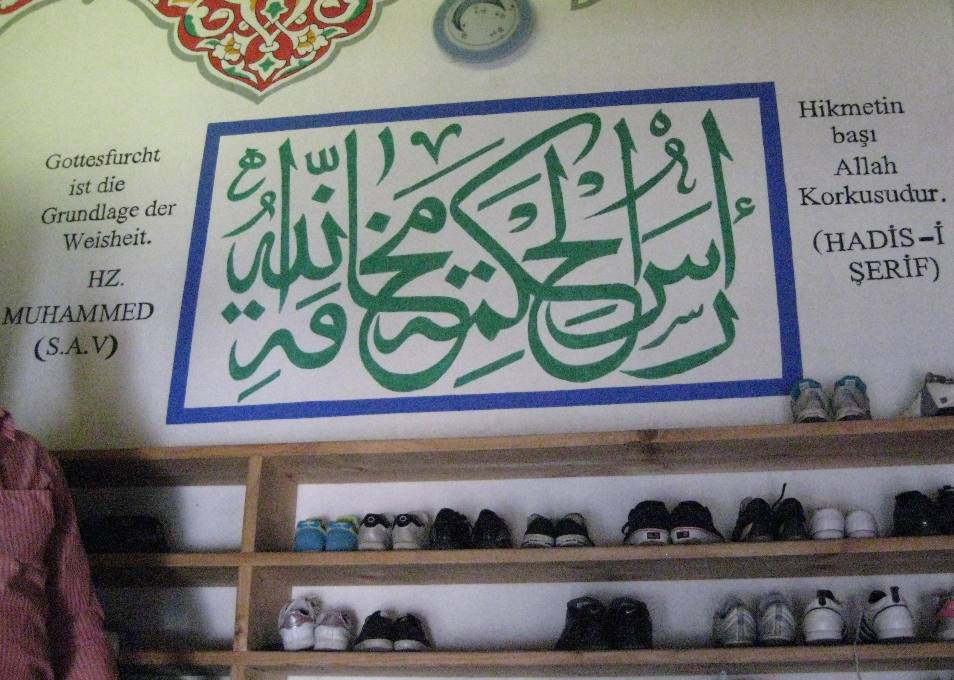 Gottesfurcht
ist die
Grundlage der
Weisheit.
HZ.
MUHAMMED
(S.A.V)
رأس الحكمة مخافة الله
Hikmetin
başı
Allah
Korkusudur.
(HADİS-İ
ŞERİF)